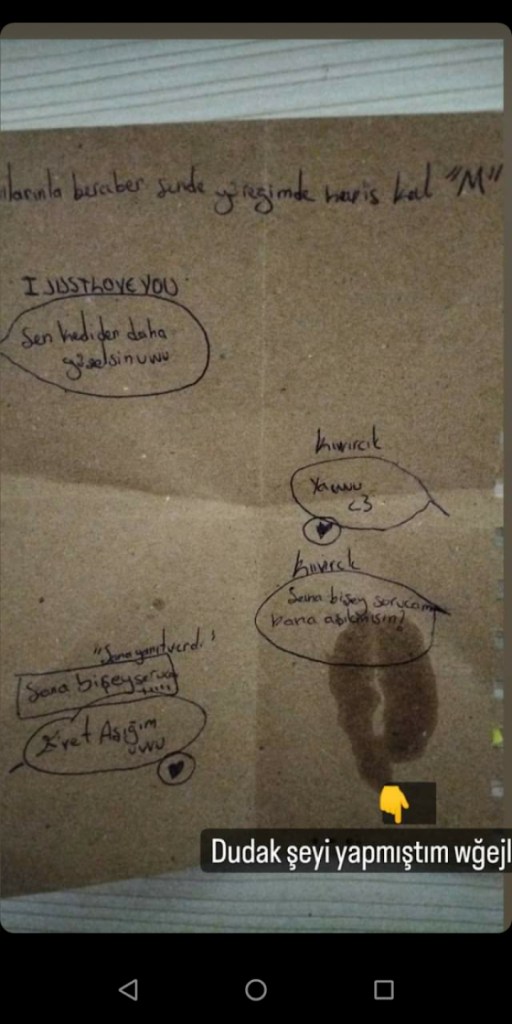 larınla beraber sende yüreğimde hapis kal "M"
I JUST LOVE YOU
Sen kediden daha
güzelsin uwu
Kıvırcık
Yauwu
<3
Kıvırcık
Sana bişey sorucam
bana aşıkmısın?
"Sana yanıt verdi"
Sana bişey
Evet Aşığım
uwu
Dudak şeyi yapmıştım wğejl